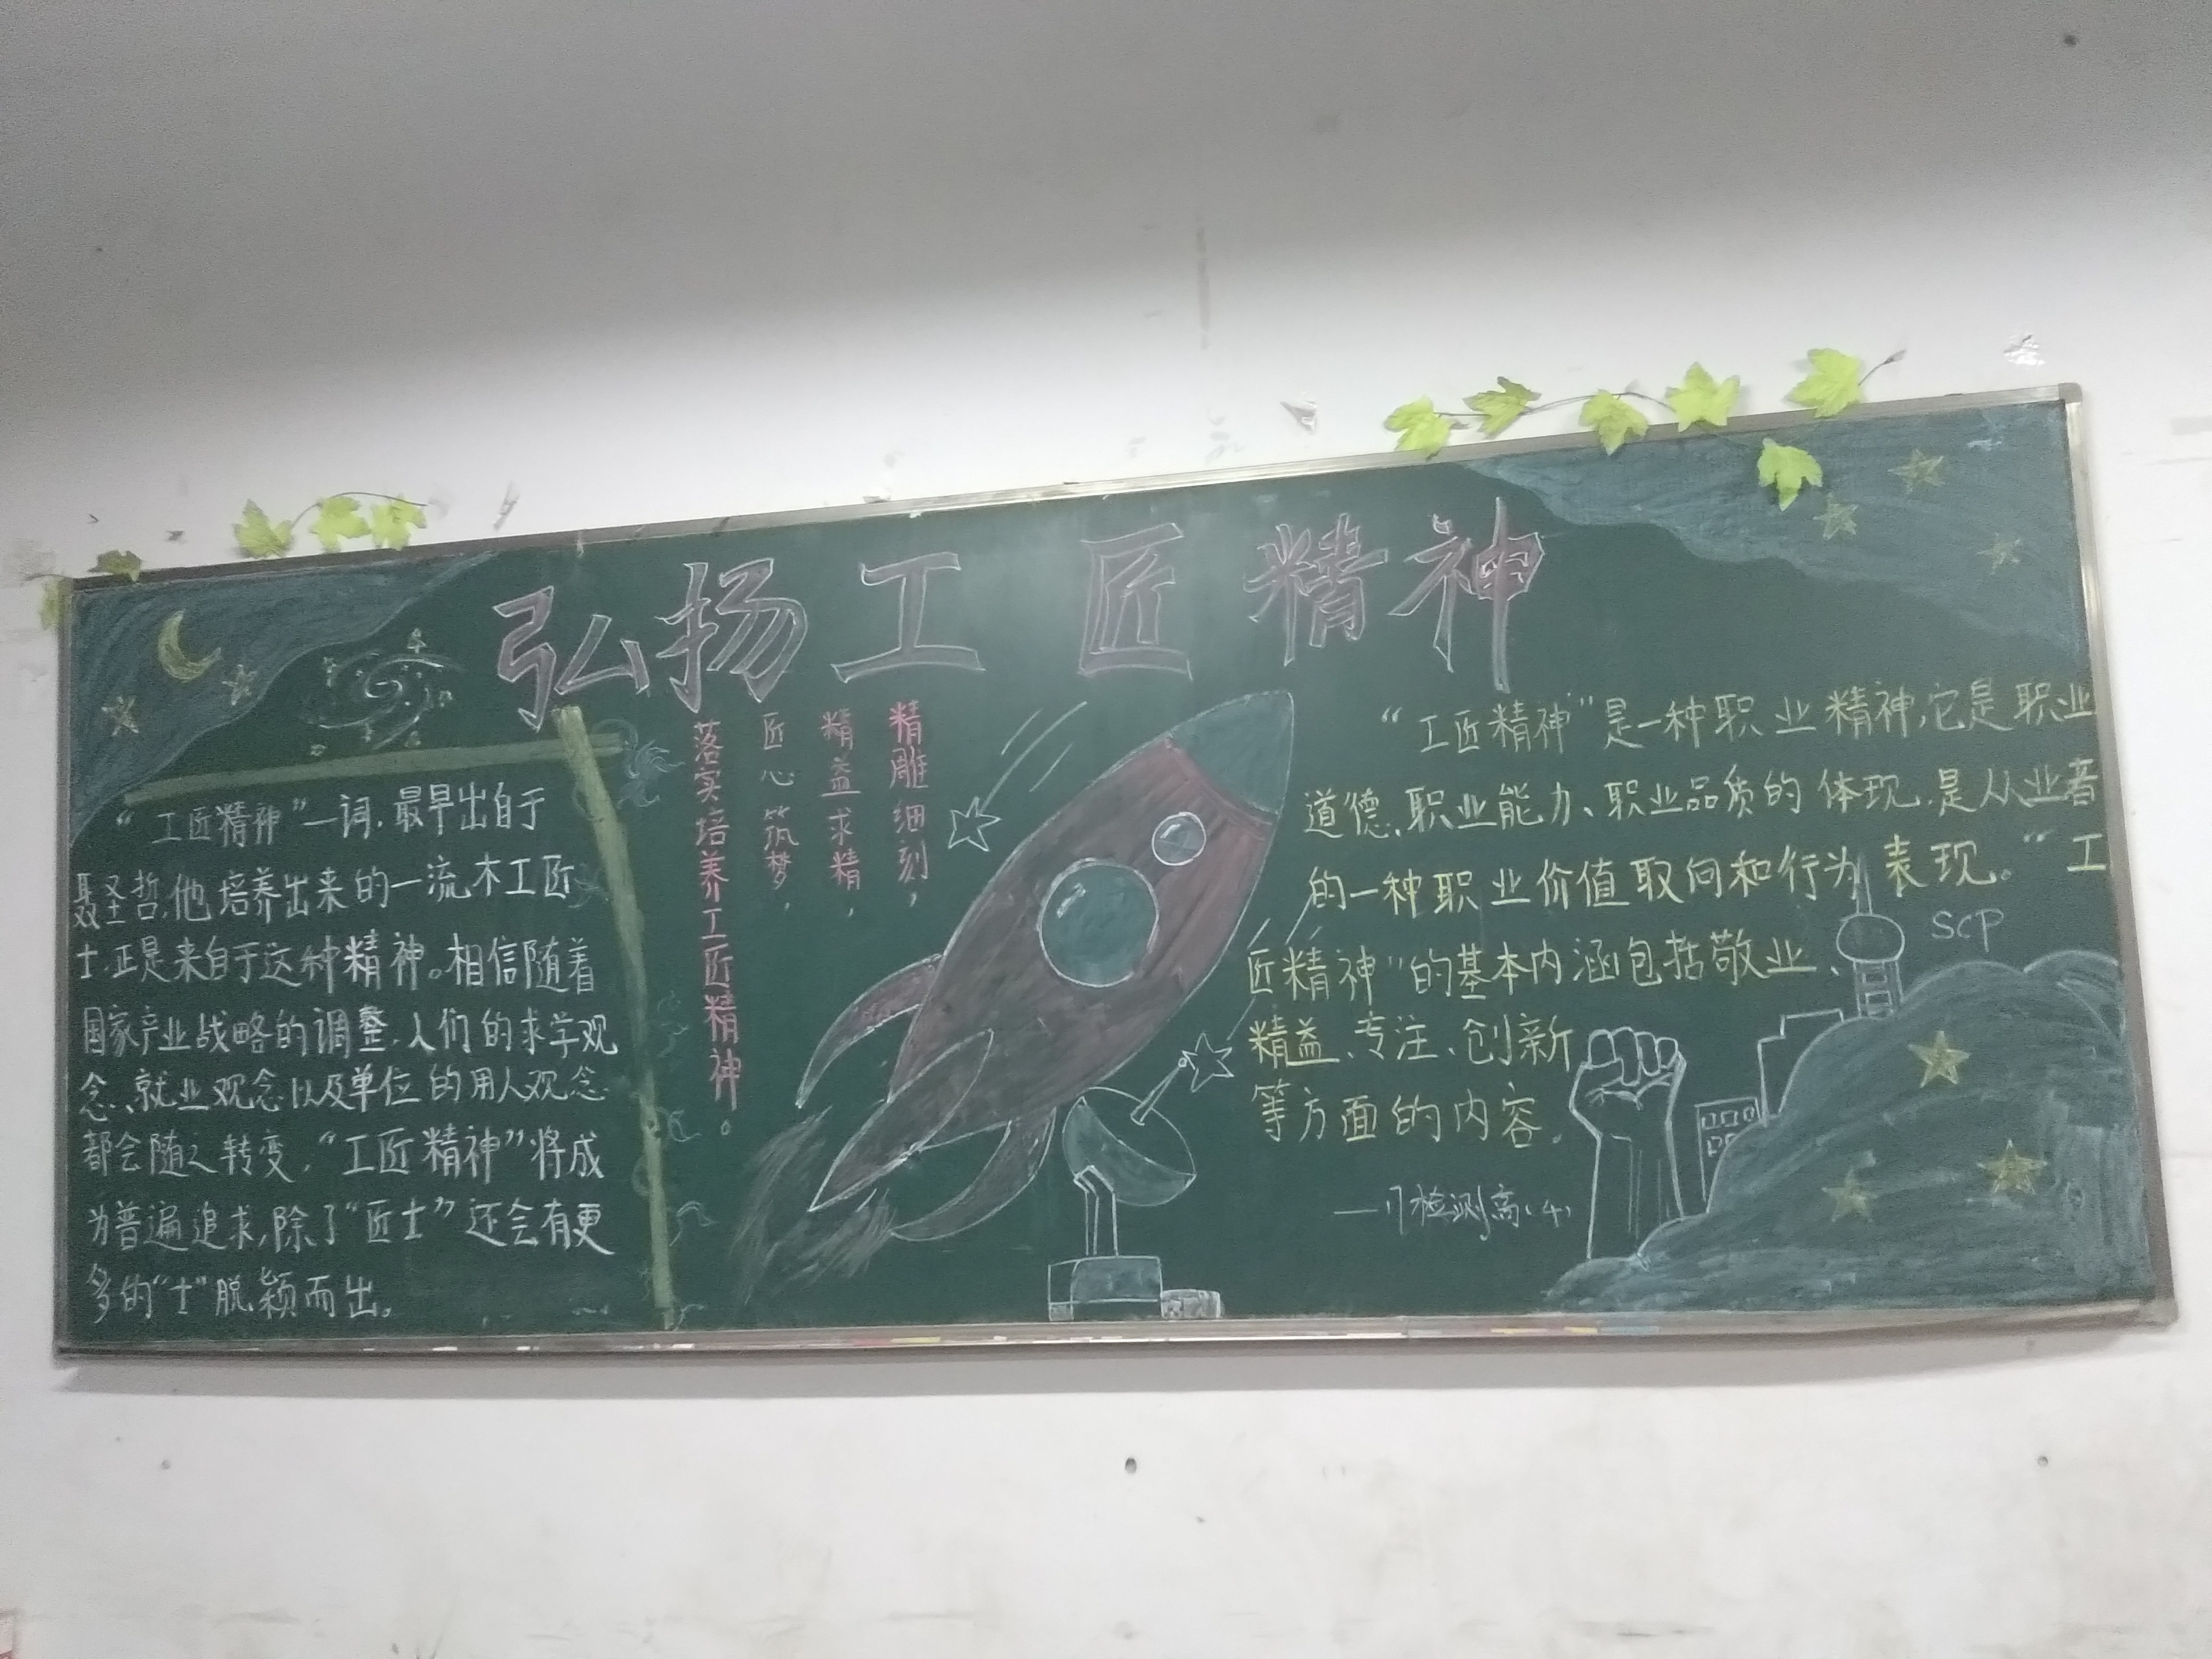 弘扬工匠精神
“工匠精神”一词,最早出自于
聂圣哲,他培养出来的一流木工匠
士,正是来自于这种精神。相信随着
国家产业战略的调整,人们的求学观
念、就业观念以及单位的用人观念
都会随之转变,“工匠精神”将成
为普遍追求,除了“匠士”还会有更
多的“士”脱颖而出。
精雕细刻,
精益求精,
匠心筑梦,
落实培养工匠精神。
“工匠精神”是一种职业精神,它是职业
道德、职业能力、职业品质的体现,是从业者
的一种职业价值取向和行为表现。“工
匠精神”的基本内涵包括敬业、
精益、专注、创新
等方面的内容。
检测高(4)
SCP